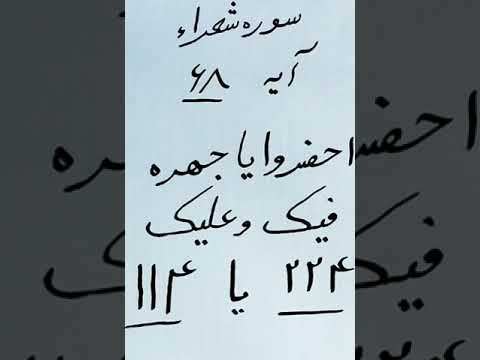 سوره شعراء
آیه ۶۸
احضروا یا جهره
فیک و علیک
۲۲۴ یا ۱۱۴